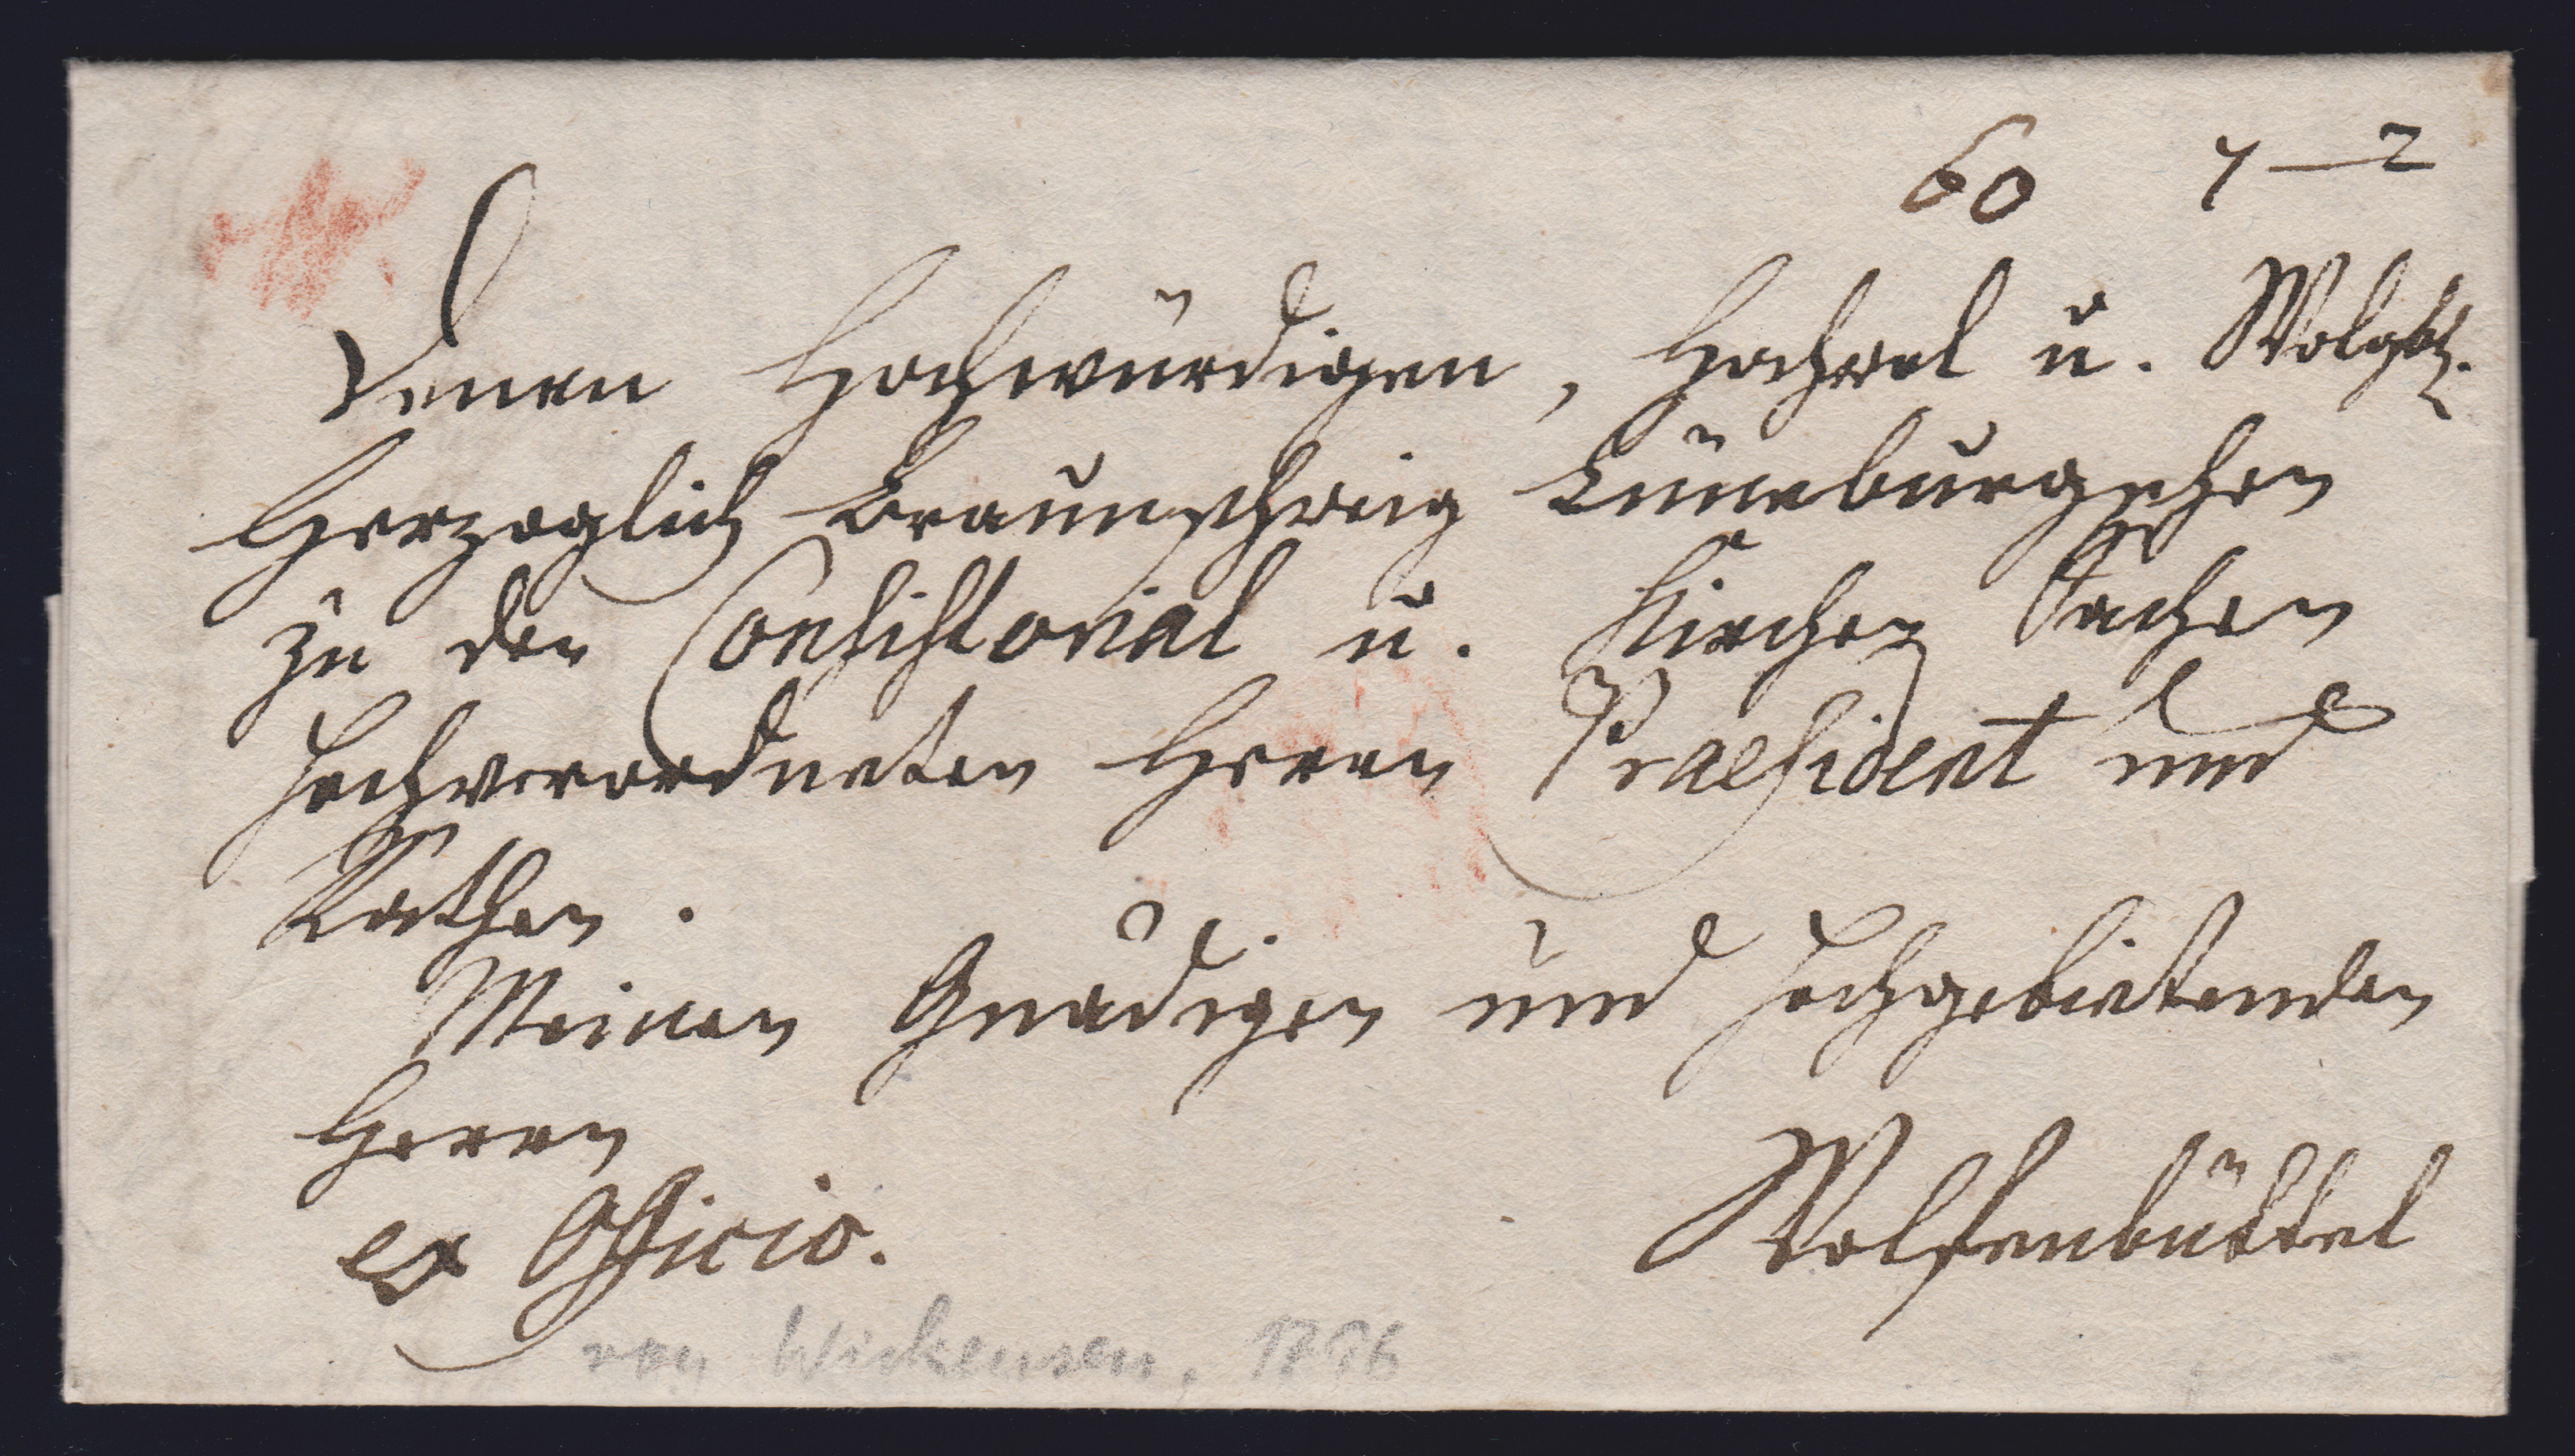 60 4—2
Denen Hochwürdigen, Hochedel u. Wolgeb.
Herzoglich Braunschweig Lüneburgschen
zu den Consistorial u. Kirchen Sachen
Hochverordneten Herrn Praesident und
Räthen.
Meinen Gnädigen und Hochgebietenden
Herren
ex Officio.
Wolfenbüttel
von Wickensen, 1796